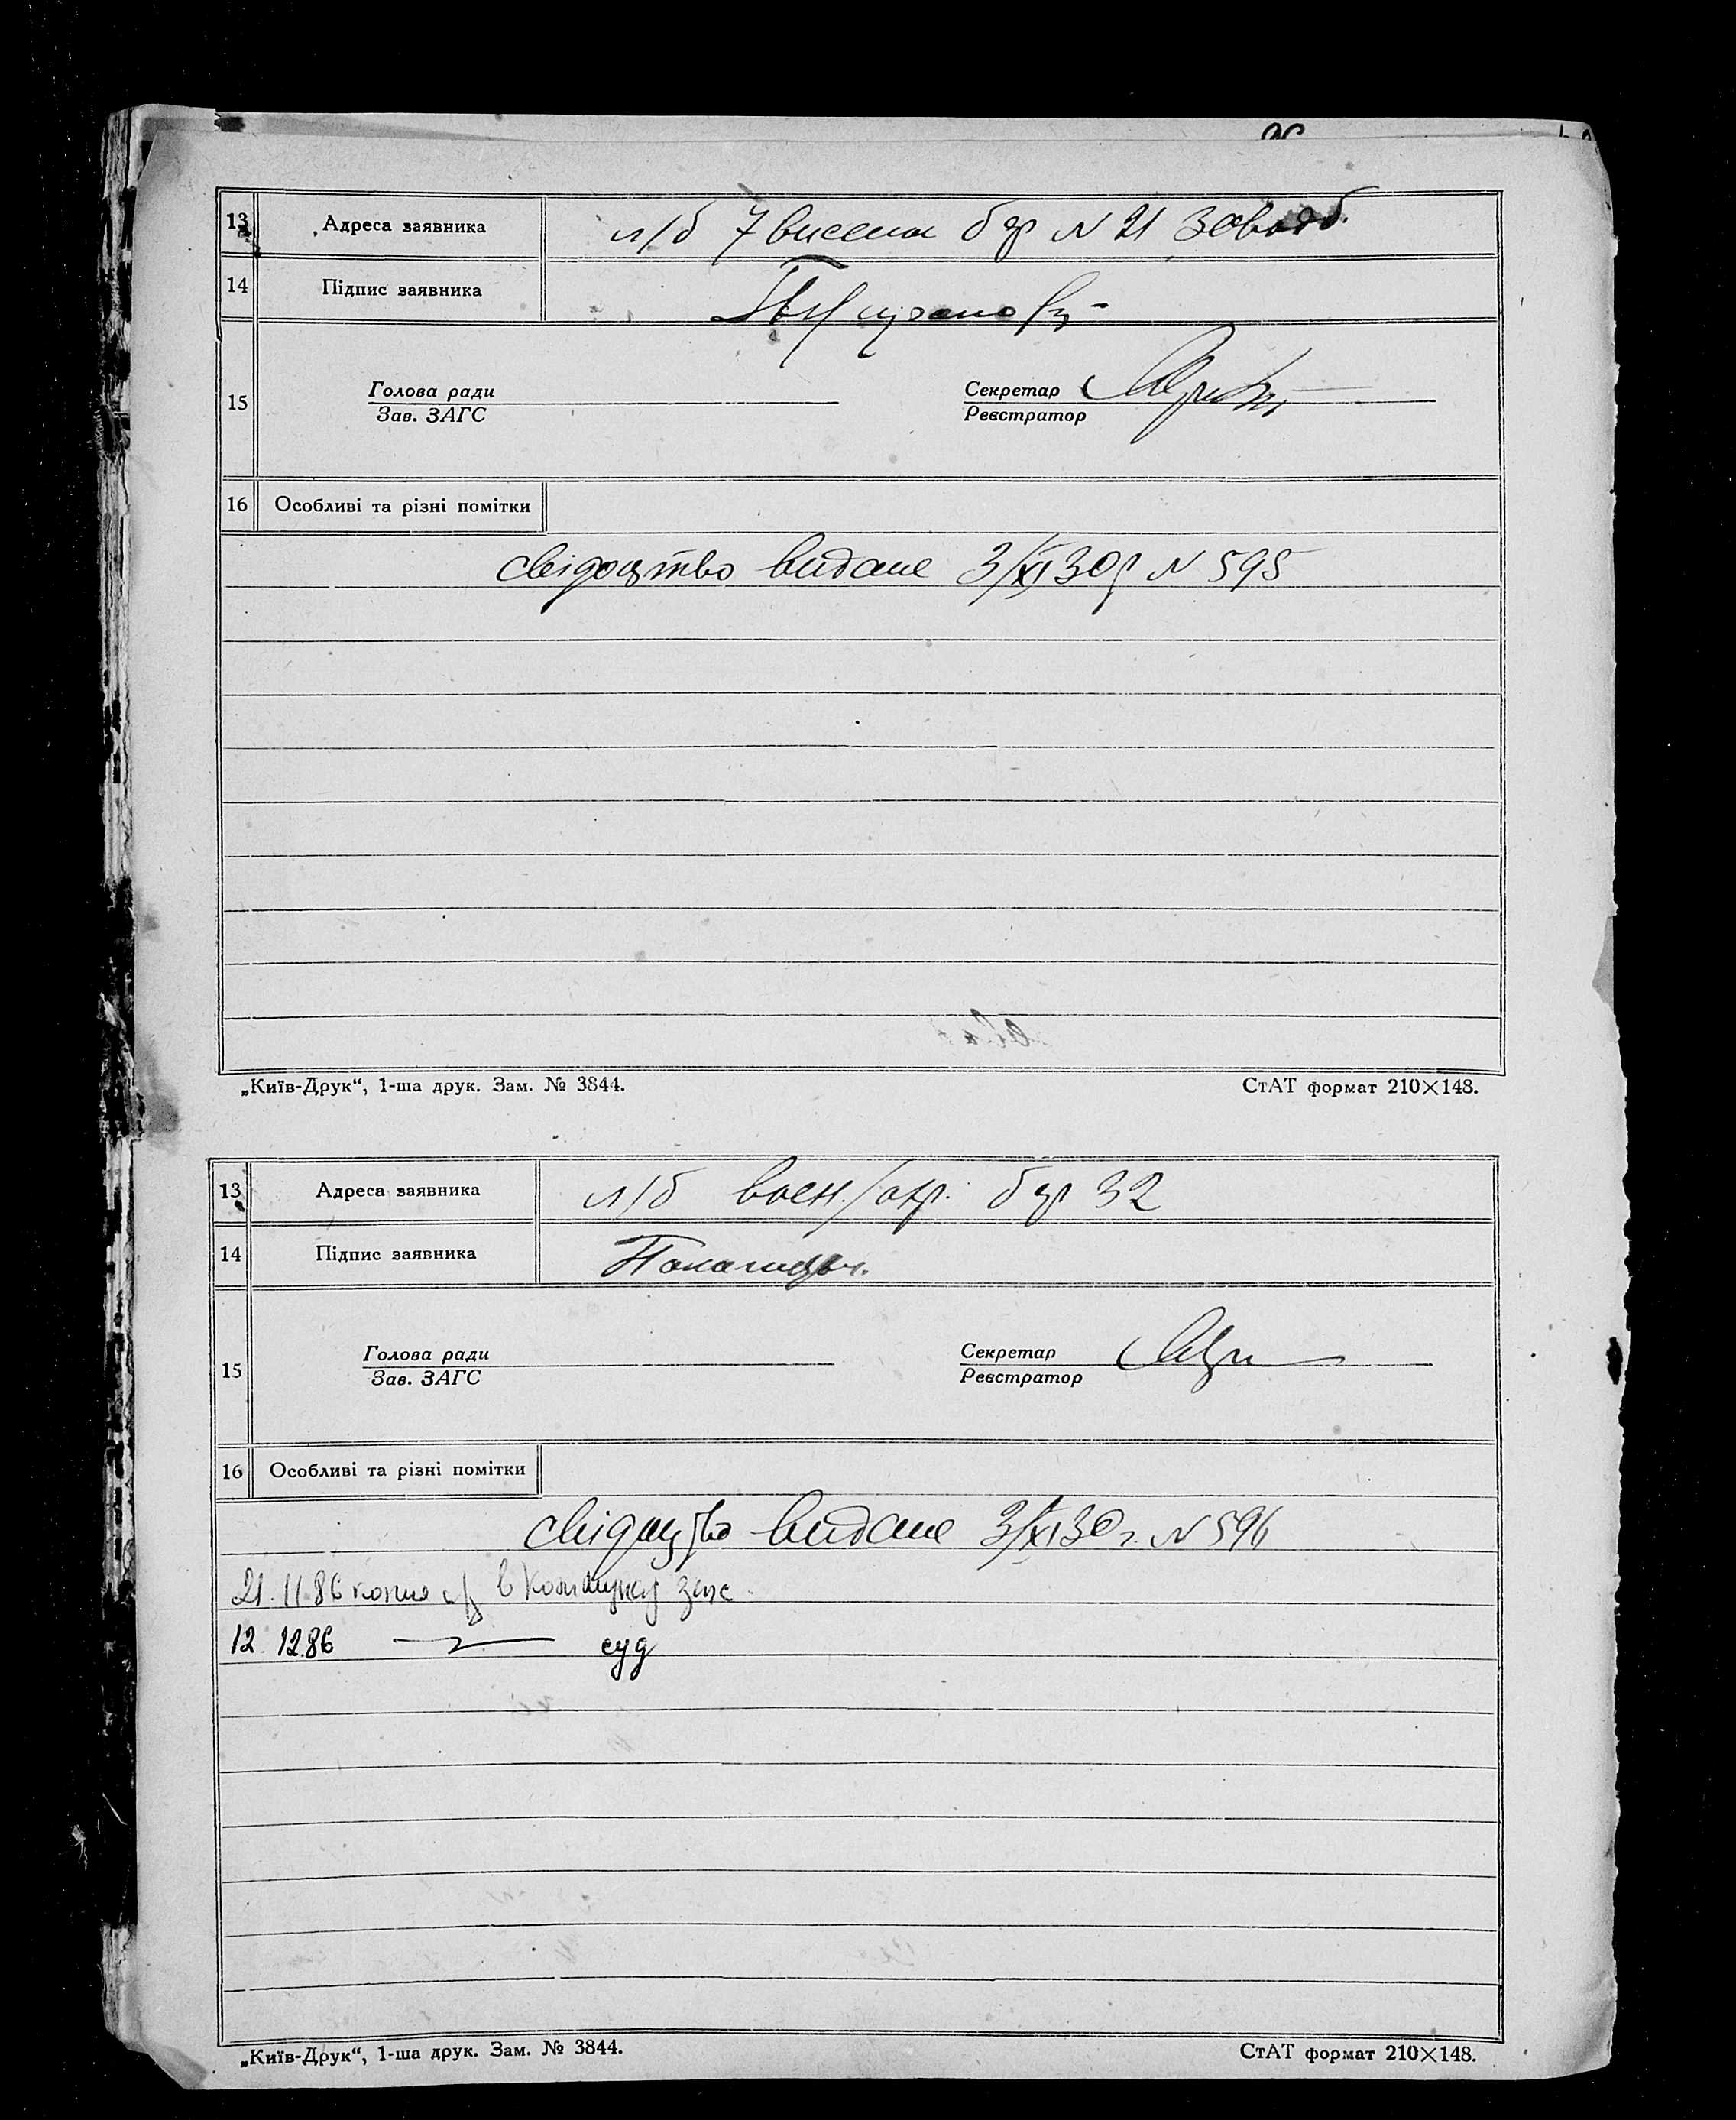 13 Адреса заявника л/б 7 висели буд N 21
14 Підпис заявника
15 Голова ради Секретар
Зав. ЗАГС Реєстратор
16 Особливі та різні помітки
свідоцтво видане 3/XI 30 р N 595
„Київ-Друк“, 1-ша друк. Зам. № 3844. СтАТ формат 210×148.
13 Адреса заявника л/б воен. буд 32
14 Підпис заявника
15 Голова ради Секретар
Зав. ЗАГС Реєстратор
16 Особливі та різні помітки
свідоцтво видане 3/XI 30 г. N 596
21.11.86 копия в загс
12.12.86 —〃— суд
„Київ-Друк“, 1-ша друк. Зам. № 3844. СтАТ формат 210×148.